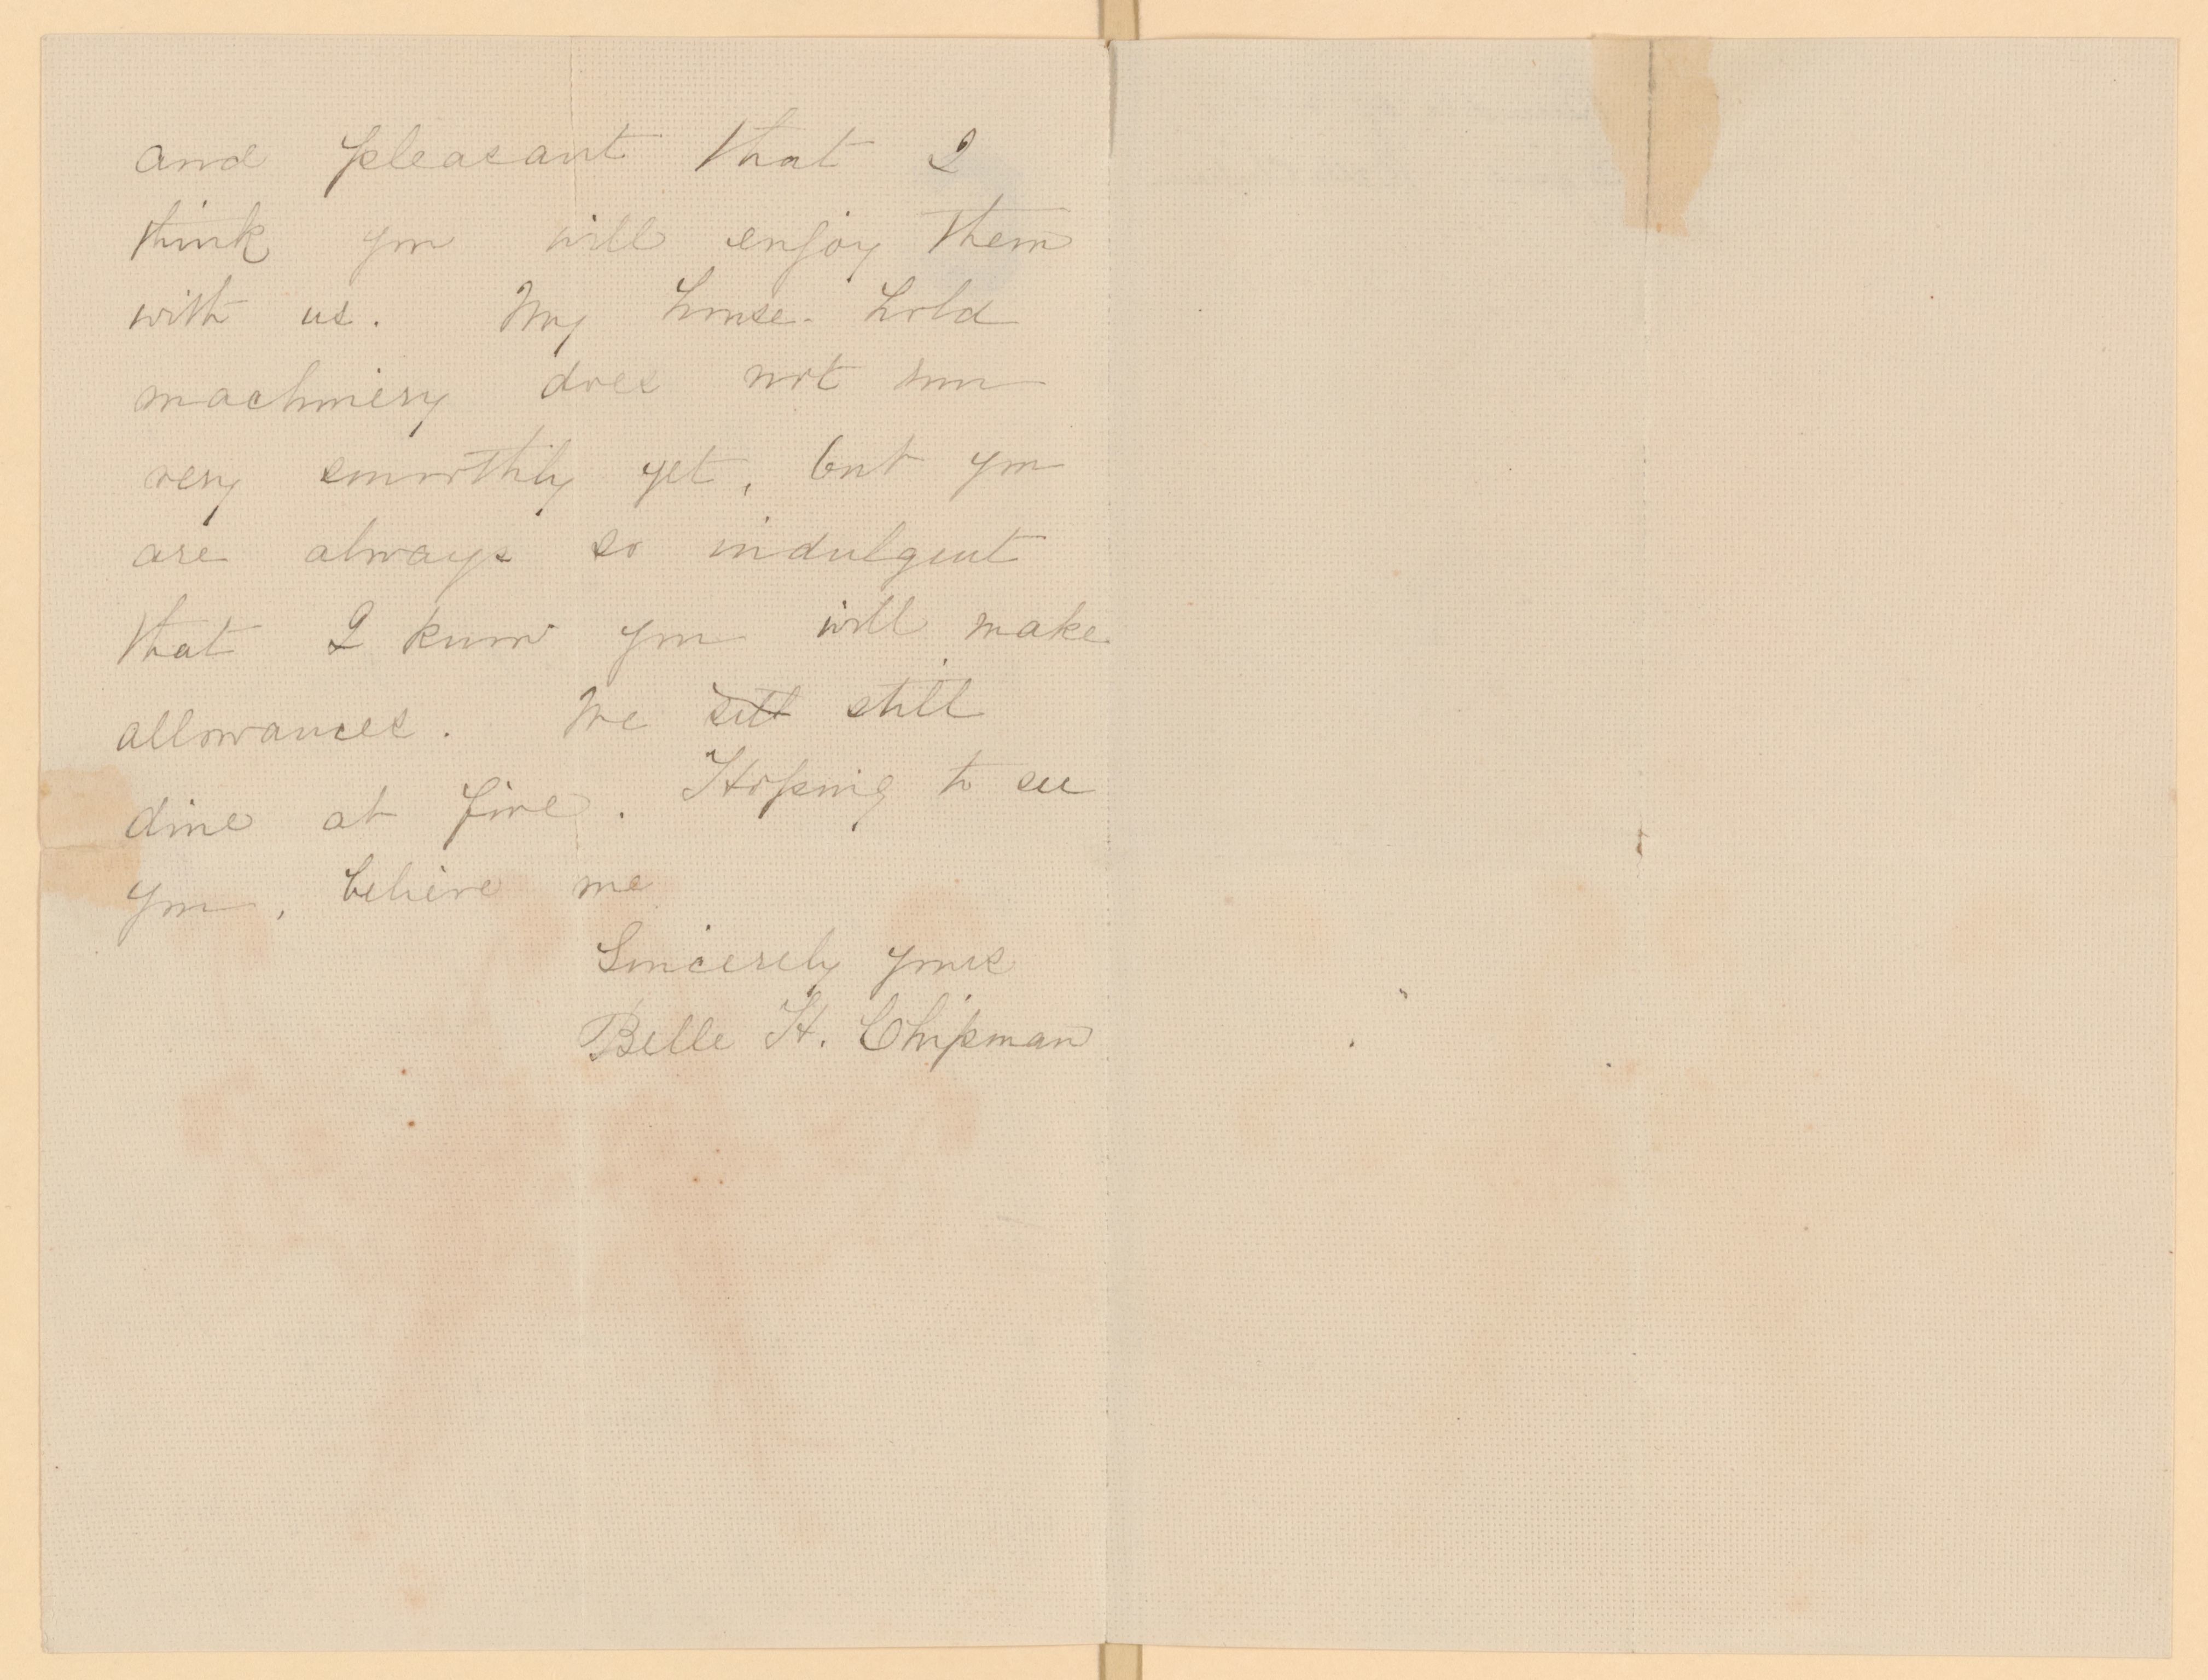 and pleasant that I
think you will enjoy them
with us. My house-hold
machinery does not run
very smoothly yet, but you
are always so indulgent
that I know you will make
allowances. We sitt still
dine at five. Hoping to see
you, believe me
Sincerely yours
Belle H. Chipman